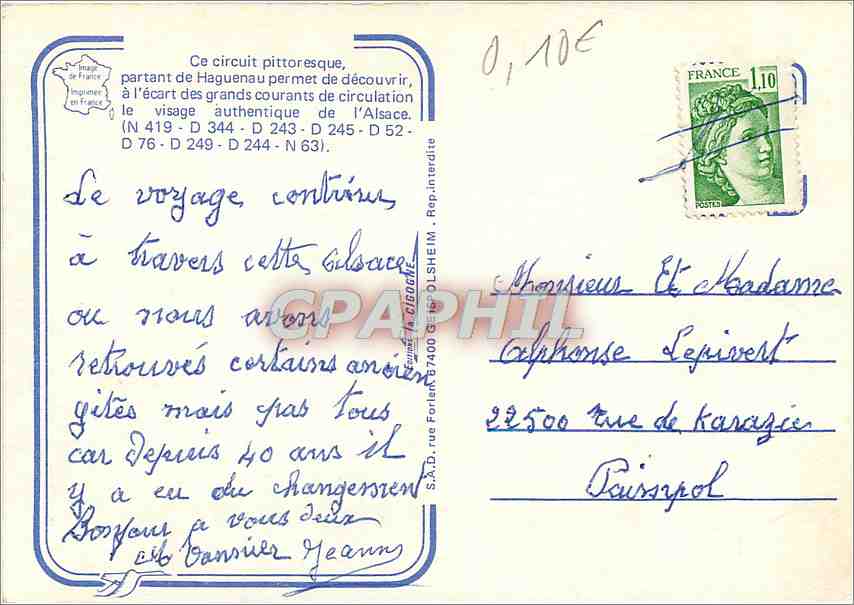 0,10€
Image
de France
Imprimer
en France
Ce circuit pittoresque,
partant de Haguenau permet de découvrir,
à l'écart des grands courants de circulation
le visage authentique de l'Alsace.
(N 419 - D 344 - D 243 - D 245 - D 52 -
D 76 - D 249 - D 244 - N 63).
FRANCE 1,10
POSTES
Le voyage continue
à travers cette Alsace
ou nous avons
retrouvés certains ancien
gites mais pas tous
car depuis 40 ans il
y a eu du changement
Bonjour a vous deux
Vannier Jeanne
Editions la CIGOGNE
S.A.D. rue Forlen 67400 GEISPOLSHEIM. Rep. interdite
CPAPHIL
Monsieur Et Madame
Alphonse Lepivert
22500 rue de Karazic
Paimpol